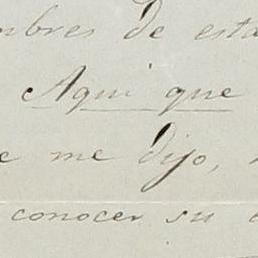 mbres de esta
Aqui que
e me dijo,
conocer su